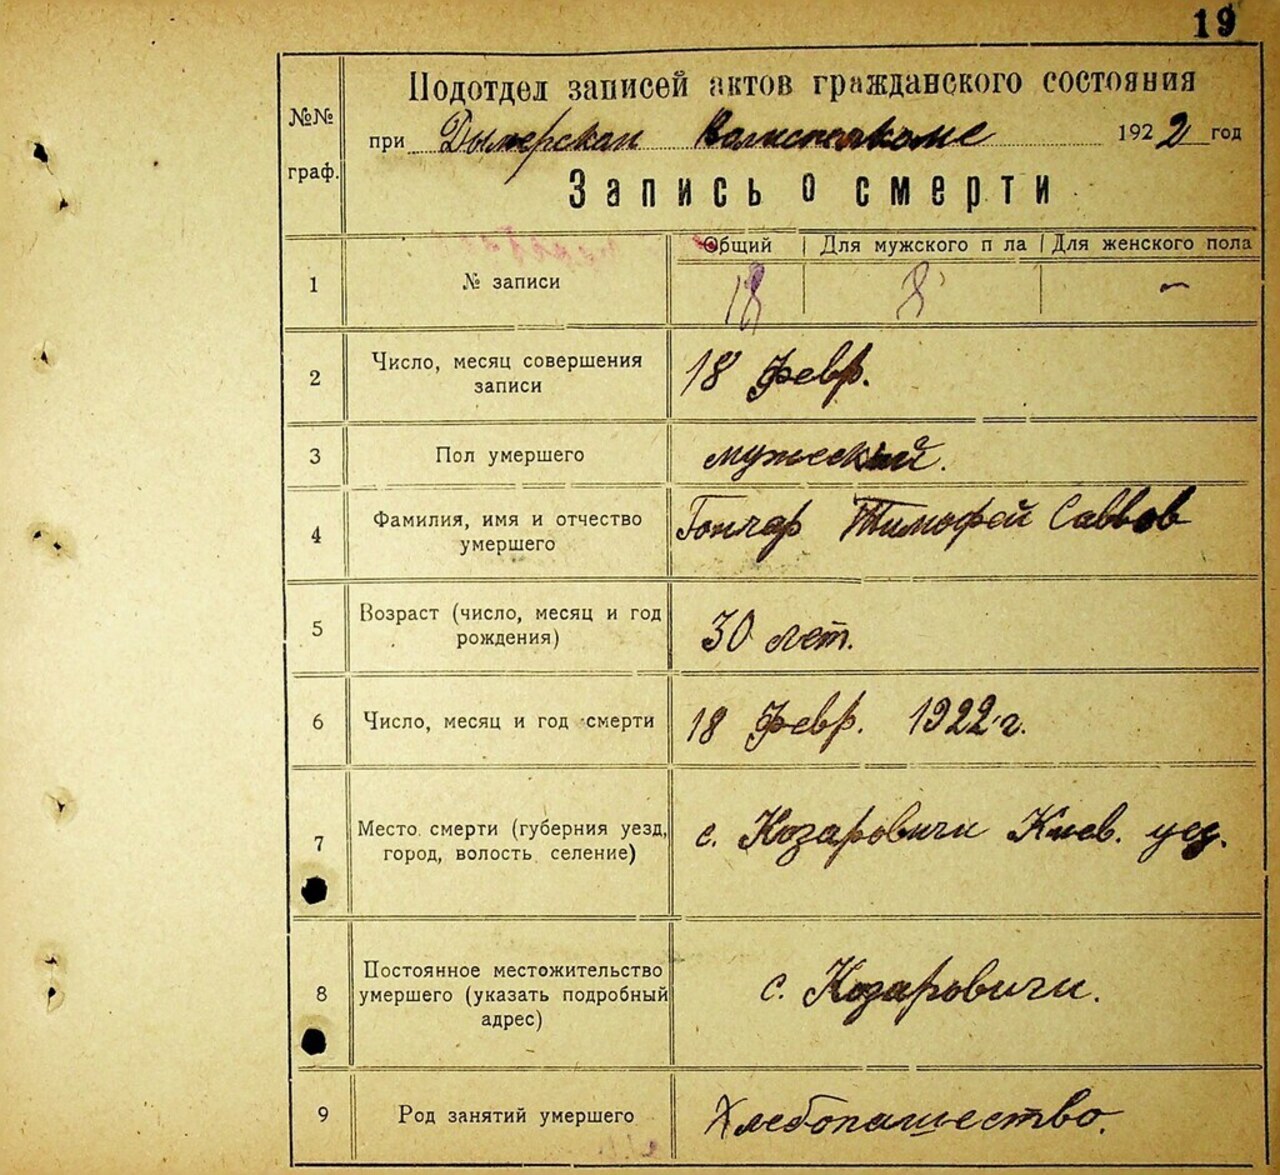 19
№№ граф.
Подотдел записей актов гражданского состояния
при Дымерском Волисполкоме 1922 год
Запись о смерти
Общий | Для мужского п ла | Для женского пола
1 № записи 18 8 -
2 Число, месяц совершения записи 18 февр.
3 Пол умершего мужеский.
4 Фамилия, имя и отчество умершего Гончар Тимофей Саввов
5 Возраст (число, месяц и год рождения) 30 лет.
6 Число, месяц и год смерти 18 февр. 1922 г.
7 Место смерти (губерния уезд, город, волость селение) с. Козаровичи Киев. уез.
8 Постоянное местожительство умершего (указать подробный адрес) с. Козаровичи.
9 Род занятий умершего Хлебопашество.